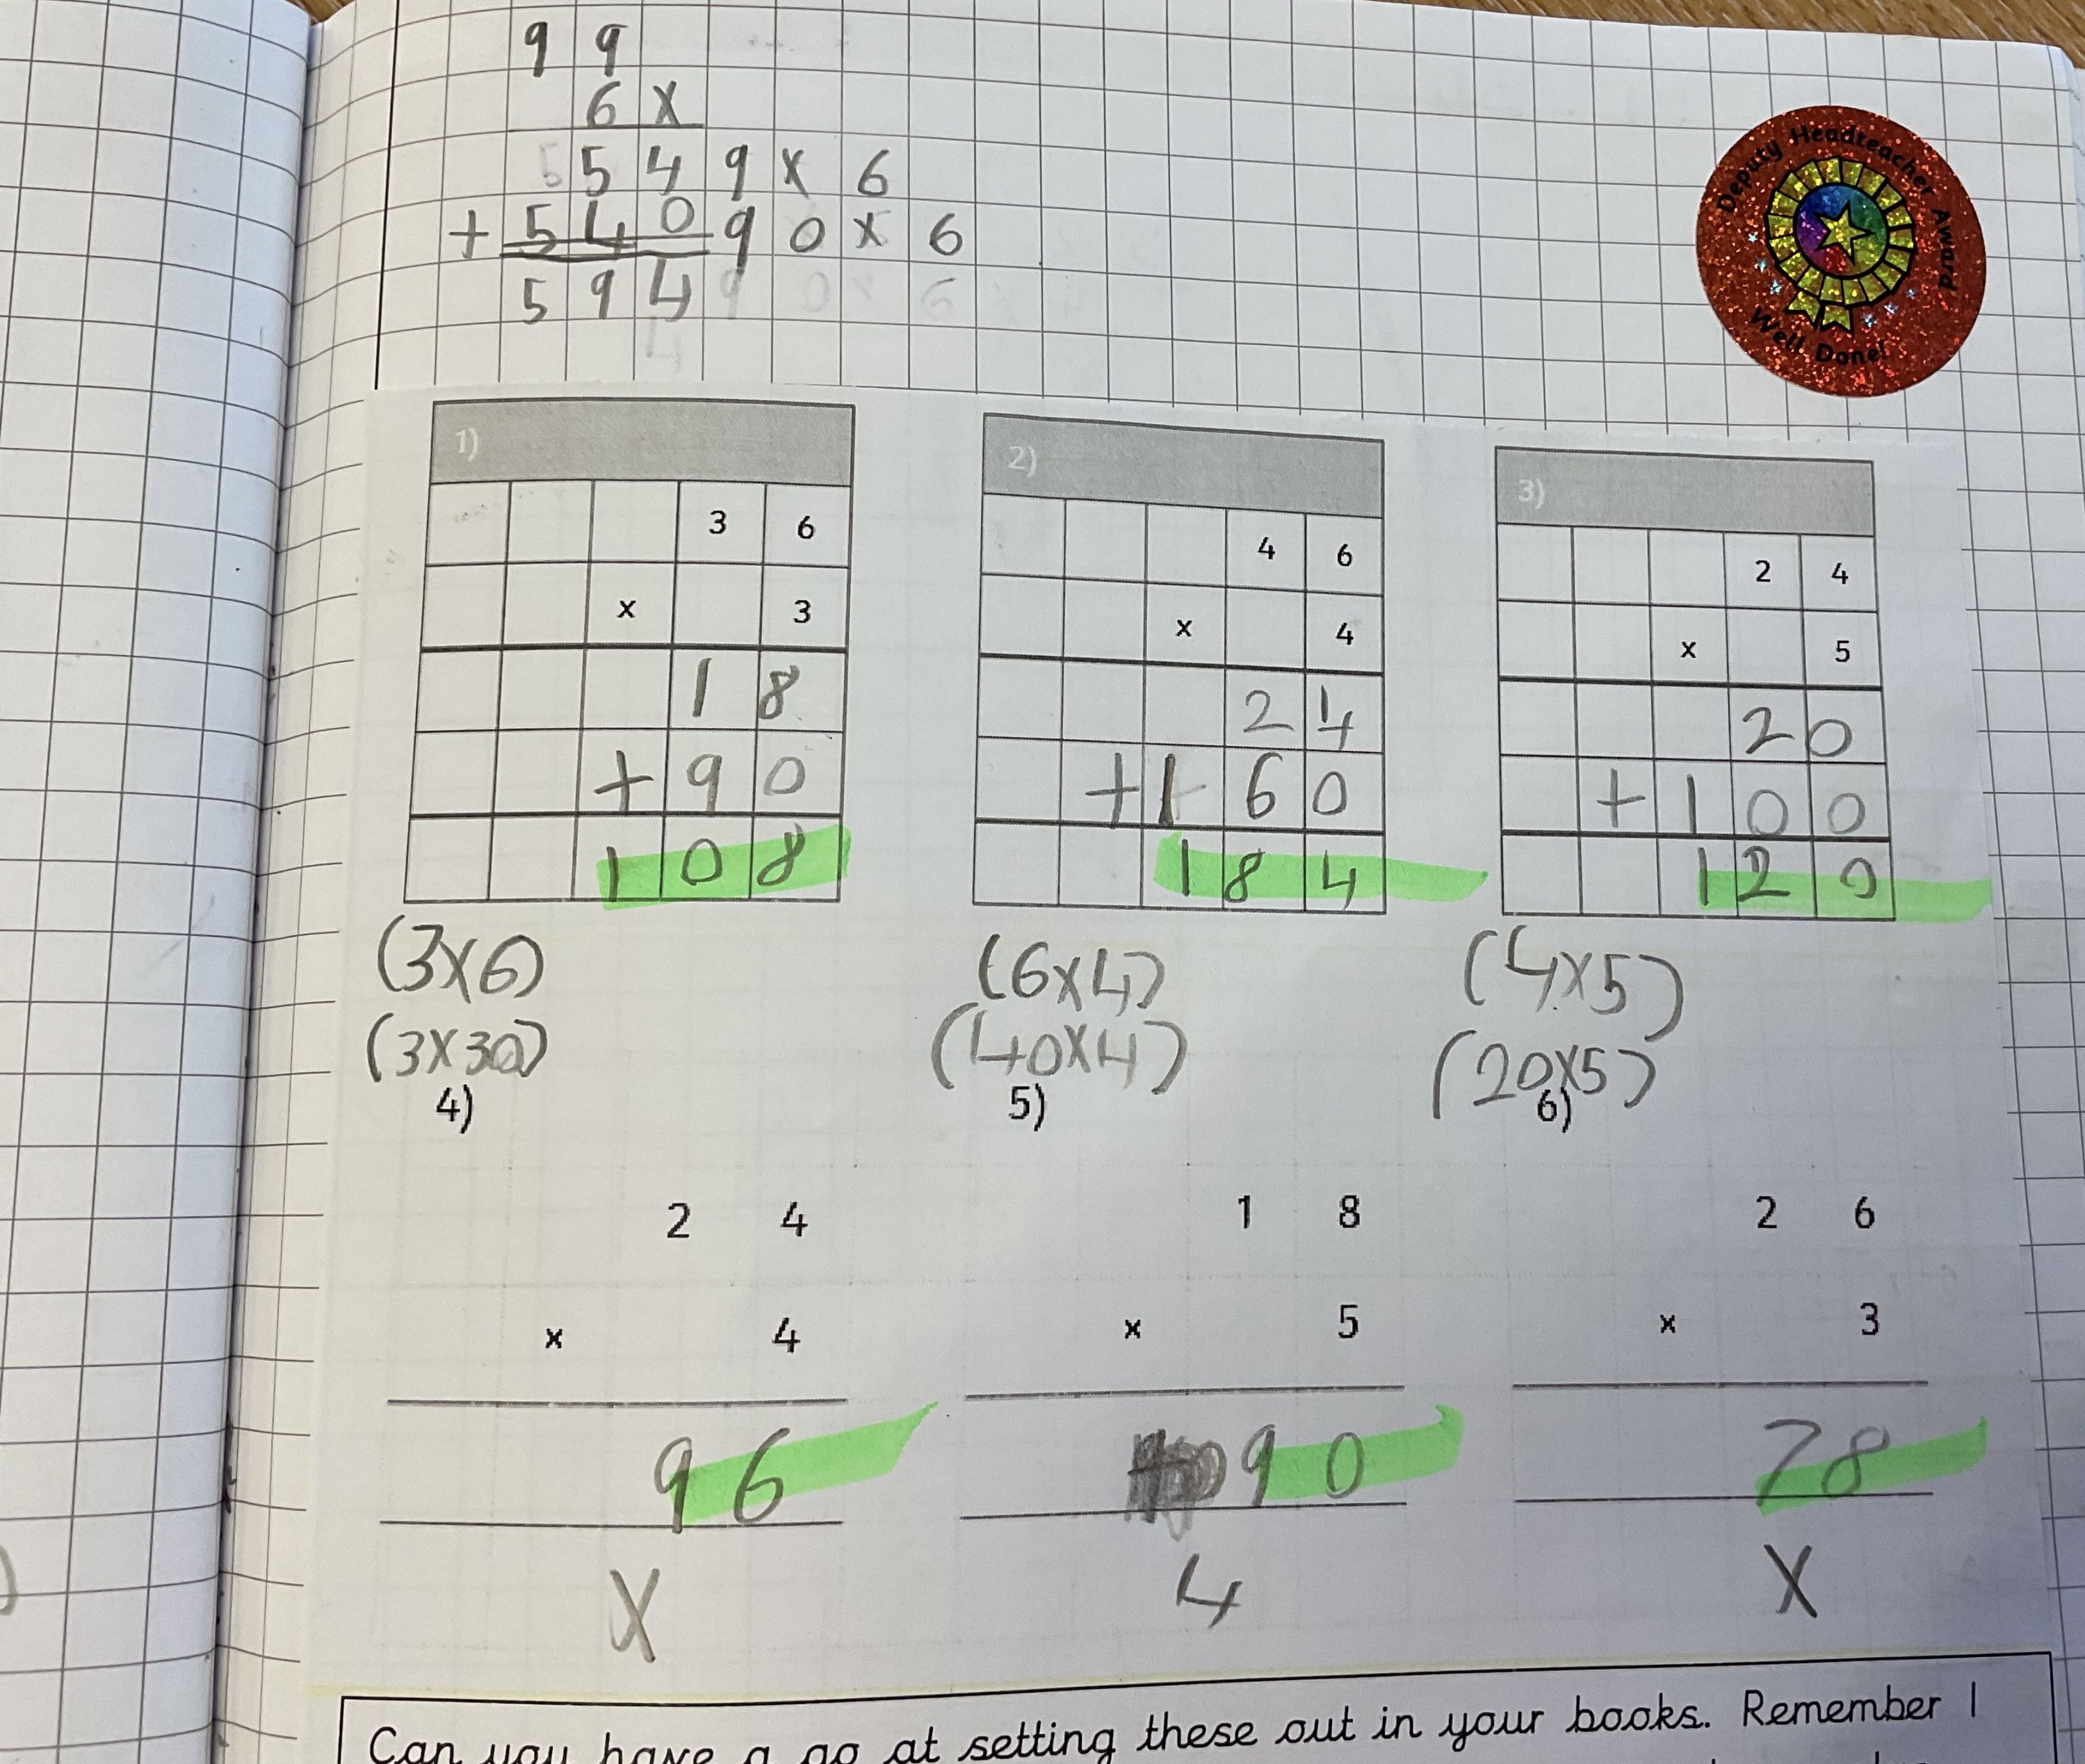 9 9
6 x
5 4 9 x 6
+ 5 4 0 9 0 x 6
5 9 4
Deputy Headteacher Award
Well Done!
1)
3 6
x 3
1 8
+ 9 0
1 0 8
(3x6)
(3x30)
2)
4 6
x 4
2 4
+ 1 6 0
1 8 4
(6x4)
(40x4)
3)
2 4
x 5
2 0
+ 1 0 0
1 2 0
(4x5)
(20x5)
4)
2 4
x 4
9 6
X
5)
1 8
x 5
9 0
4
6)
2 6
x 3
7 8
X
Can you have a go at setting these out in your books. Remember I